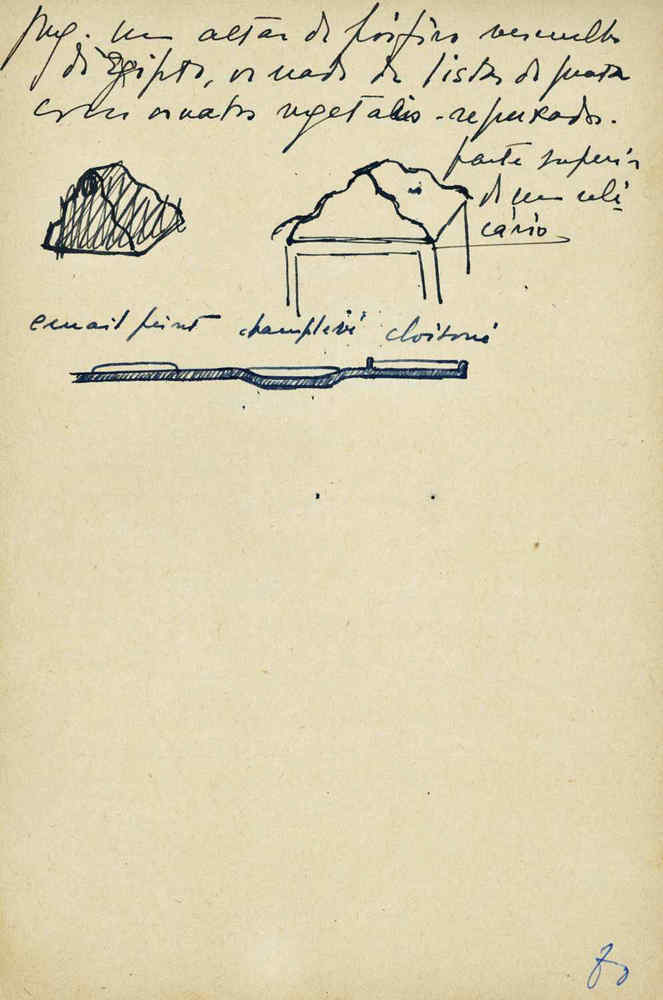 peq. um altar de pórfiro vermelho
do Egipto, ornado de listas de prata
com ornatos vegetais - repuxados.
parte superior
de um reli-
cário
email peint champlevé cloisoné
70